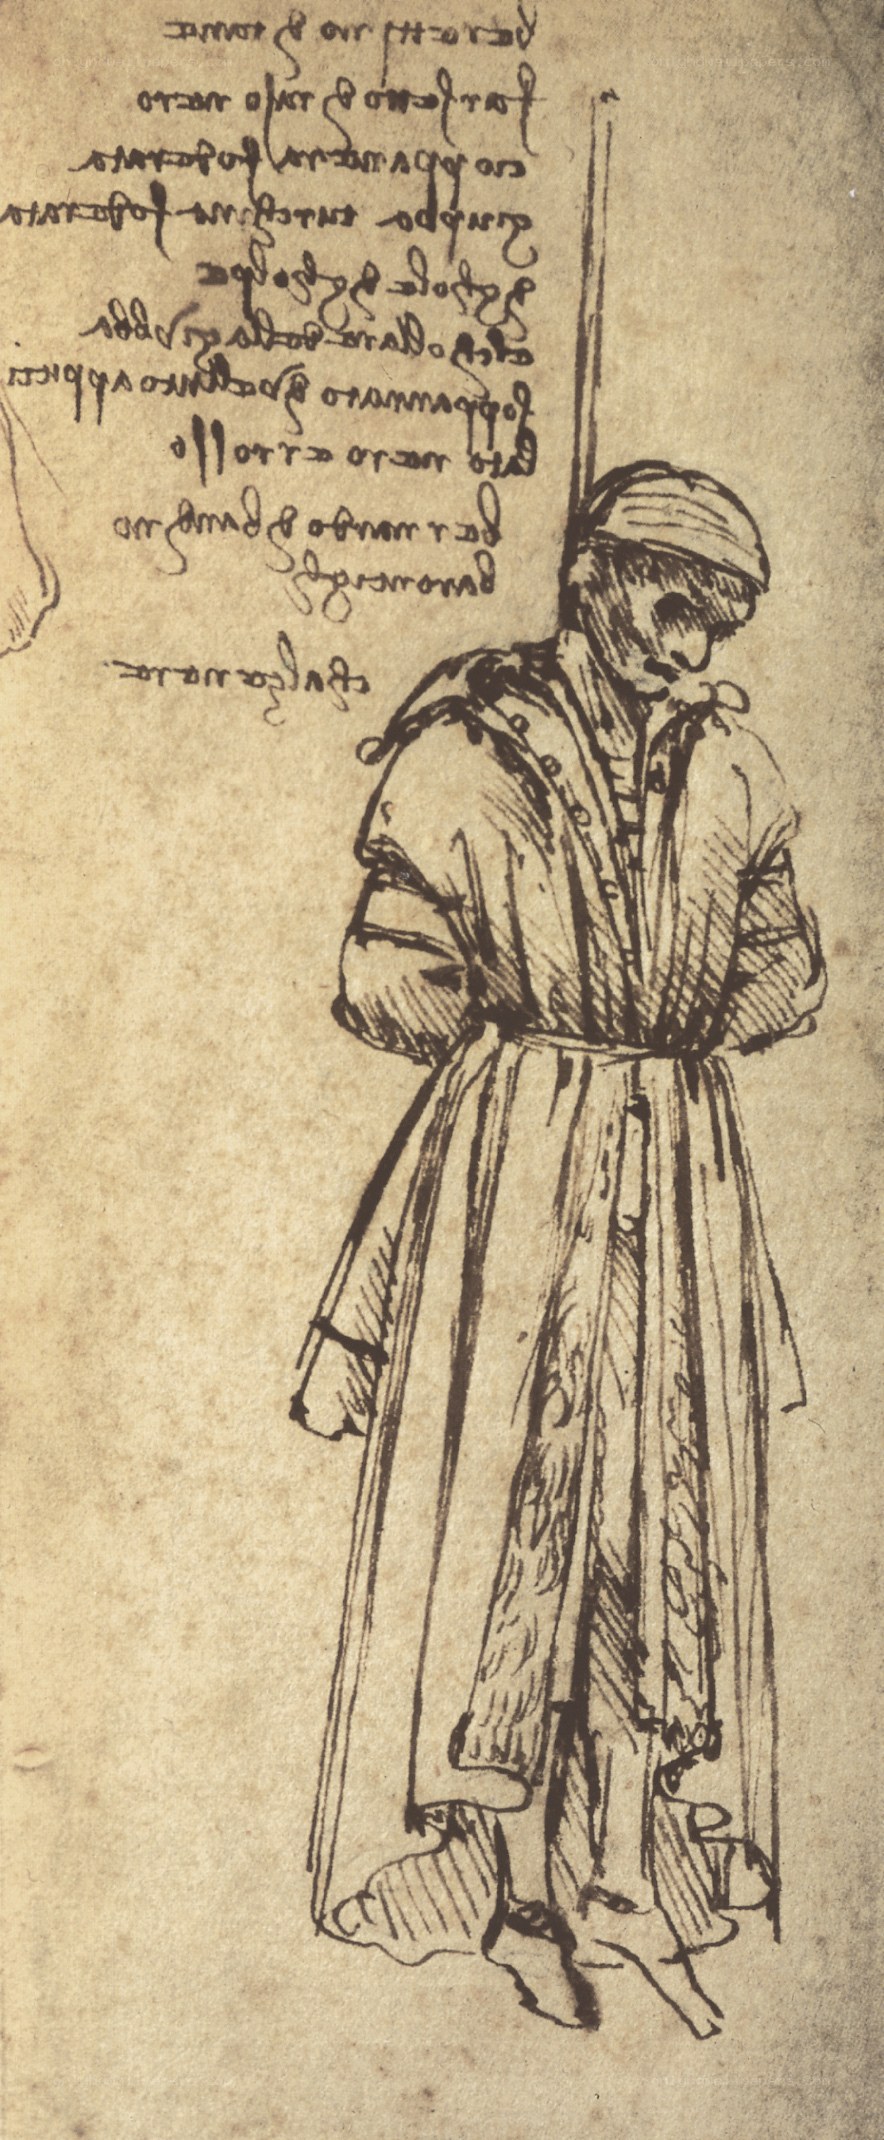 berettino di tane
farsetto di raso nero
cioppa nera foderata
giuppa turchina foderata
di gole di golpe
el chollare della giubba
soppannato di velluto appicci
lato nero e rosso
bernardo di bandino
baroncigli
chalze nere